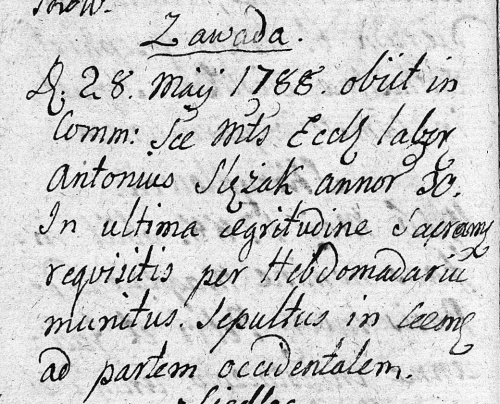 Zawada.
D. 28. Maij 1788. obiit in
Comm: See Mts Eccl laber
Antonius Slęzak annor 30.
In ultima egritudine Sacram
requisitis per Hebdomadariū
munitus. Sepultus in Ceem
ad partem occidentalem.